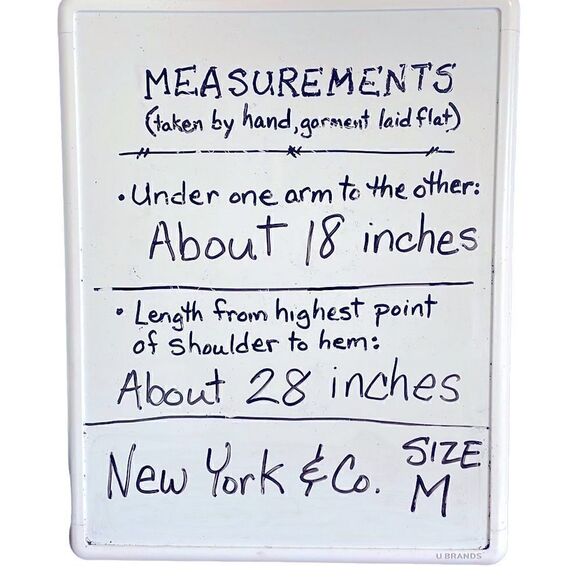 MEASUREMENTS
(taken by hand, garment laid flat)
• Under one arm to the other:
About 18 inches
• Length from highest point
of shoulder to hem:
About 28 inches
New York & Co. SIZE M
U BRANDS